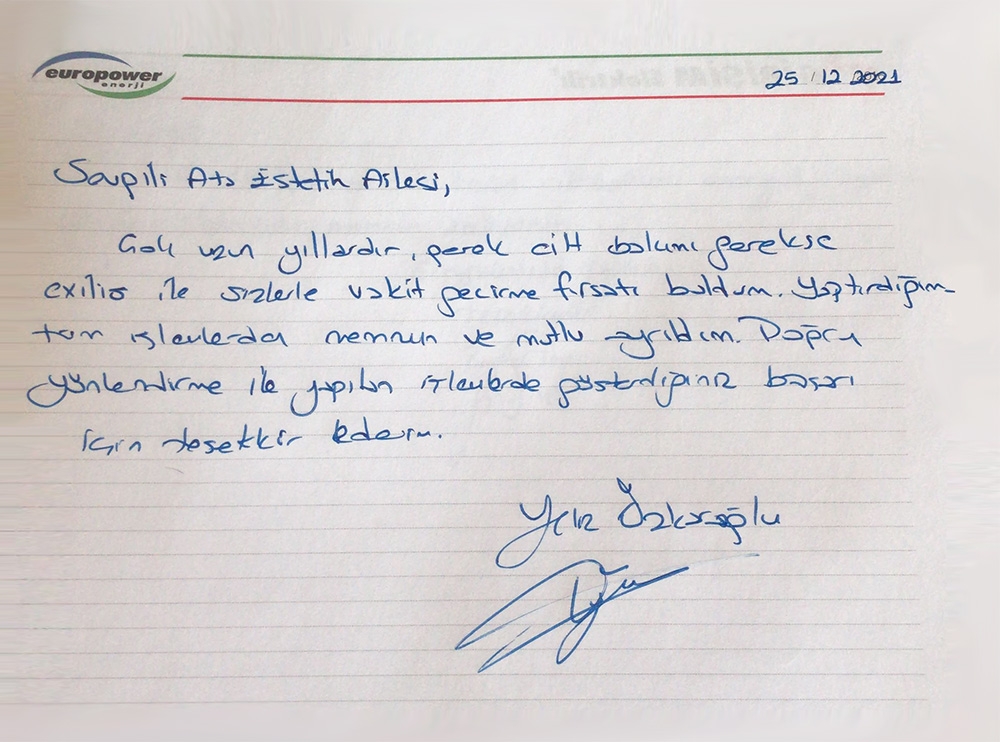 europower
enerji
25.12.2021
Saygılı Ata Estetik Ailesi,
Çok uzun yıllardır, gerek cilt bakımı gerekse
exilis ile sizlerle vakit geçirme fırsatı buldum. Yaptırdığım
tüm işlemlerden memnun ve mutlu ayrıldım. Doğru
yönlendirme ile yapılan işlemlerde gösterdiğiniz başarı
için teşekkür ederim.
Özkaraoğlu